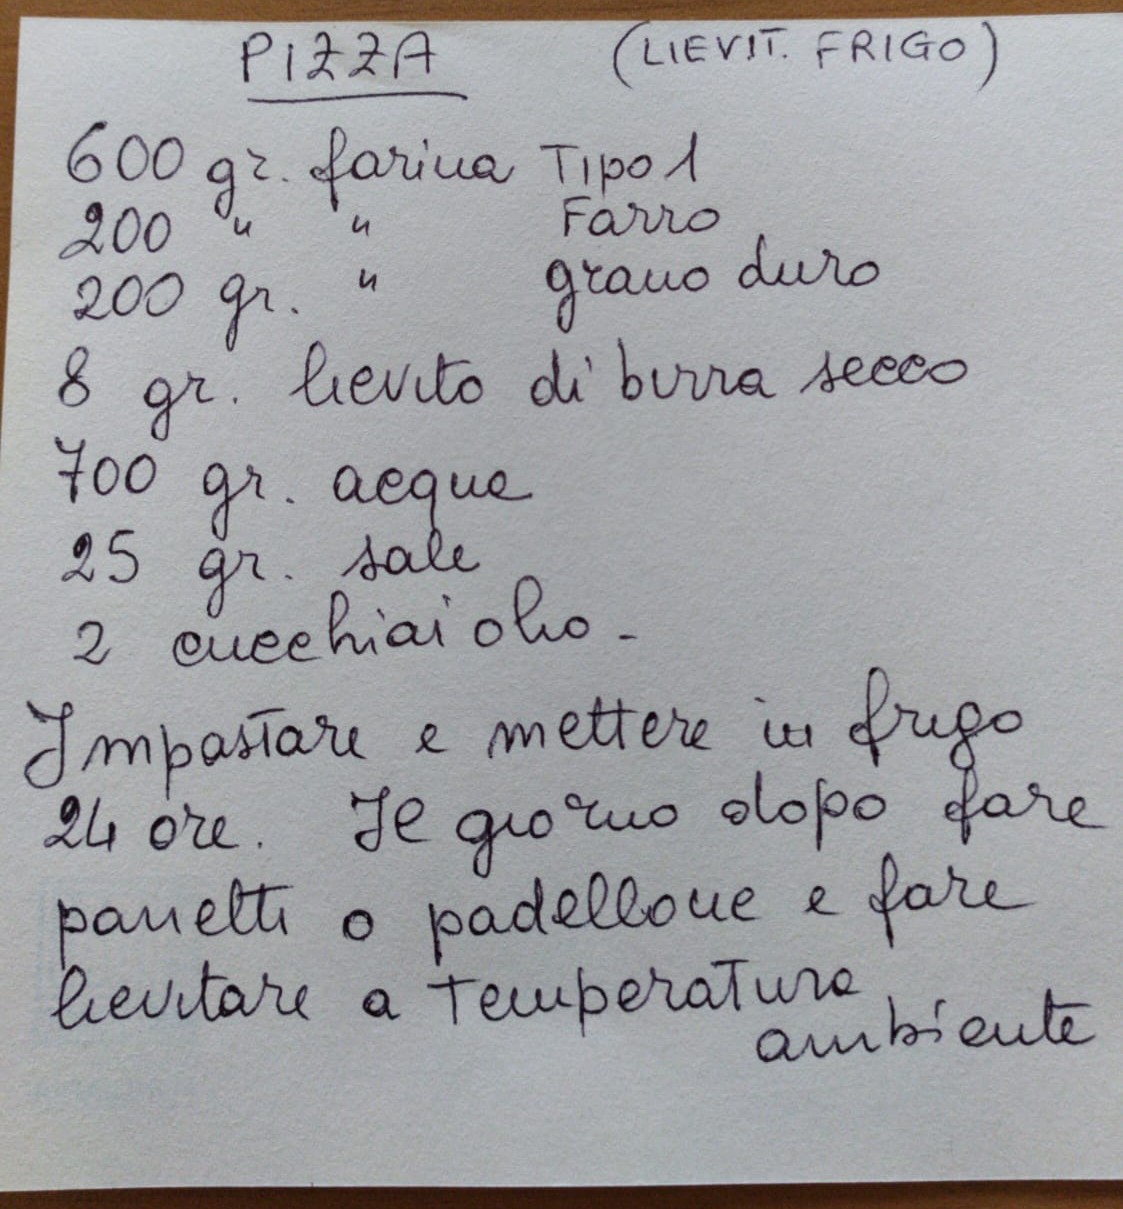 PIZZA (LIEVIT. FRIGO)
600 gr. farina Tipo 1
200 " " Farro
200 gr. " grano duro
8 gr. lievito di birra secco
700 gr. acqua
25 gr. sale
2 cucchiai olio -
Impastare e mettere in frigo
24 ore. Il giorno dopo fare
panetti o padellone e fare
lievitare a Temperatura
ambiente